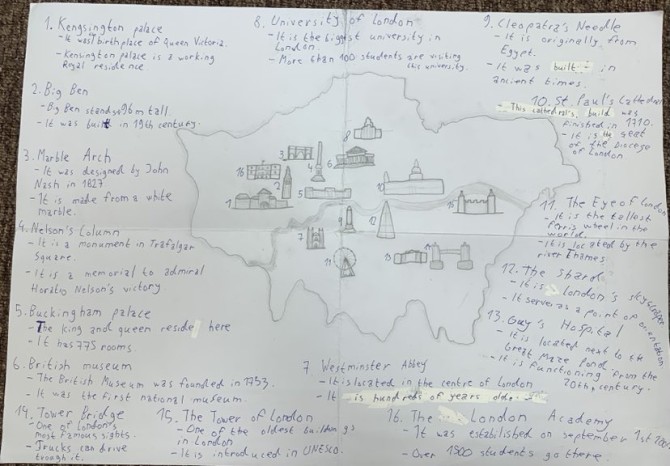 1. Kengsington palace
- It was birthplace of Queen Victoria.
- Kensington palace is a working
Royal residence
2. Big Ben
- Big Ben stands 96m tall.
- It was built in 19th century.
3. Marble Arch
- It was designed by John
Nash in 1827.
- It is made from a white
marble.
4. Nelson's Column
- It is a monument in Trafalgar
Square.
- It is a memorial to admiral
Horatio Nelson's victory
5. Buckingham palace
- The king and queen reside here
- It has 775 rooms.
6. British museum
- The British Museum was founded in 1753.
- It was the first national museum.
14. Tower Bridge
- One of London's
most famous sights.
- Trucks can drive
trough it.
15. The Tower of London
- One of the oldest buildings
in London
- It is introduced in UNESCO.
7 Westminster Abbey
- It is located in the centre of London
- It is hundreds of years old.
16. The London Academy
- It was estabilished on september 1st
- Over 1500 students go there.
8. University of London
- It is the biggest university in
London.
- More than 100 students are visiting
this university.
9. Cleopatra's Needle
- It is originally from
Egypt.
- It was built in
ancient times.
10. St. Paul's Cathedral
- This cathedral's build was
finished in 1710.
- It is seat
of the Diocese
of London
11. The Eye of London
- It is the tallest
ferris wheel in the
world.
- It is located by the
river Thames
12. The Shard
- It is London's skyscraper
- It serves as a point of orientation
13. Guy's Hospital
- It is located next to the
Great Maze Pond
- It is functioning from the
20th century.
1
2
3
4
5
6
7
8
9
10
11
12
13
14
15
16